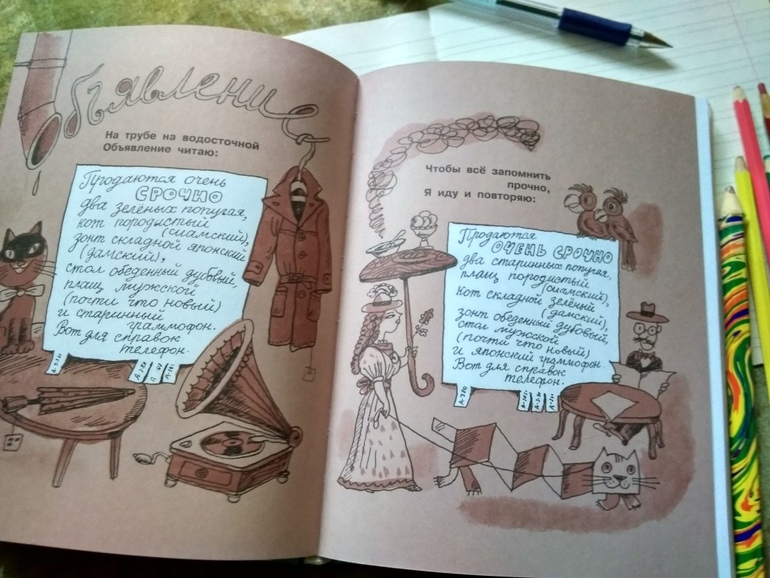 Объявление
На трубе на водосточной
Объявление читаю:
Продаются очень
СРОЧНО
два зелёных попугая,
кот породистый
(сиамский),
зонт складной японский
(дамский),
стол обеденный дубовый,
плащ мужской
(почти что новый)
и старинный
граммофон.
Вот для справок
телефон.
Чтобы всё запомнить
прочно,
Я иду и повторяю:
Продаются
ОЧЕНЬ СРОЧНО
два старинных попугая,
плащ породистый
(сиамский),
кот складной зелёный
(дамский),
зонт обеденный дубовый,
стол мужской
(почти что новый)
и японский граммофон.
Вот для справок
телефон.